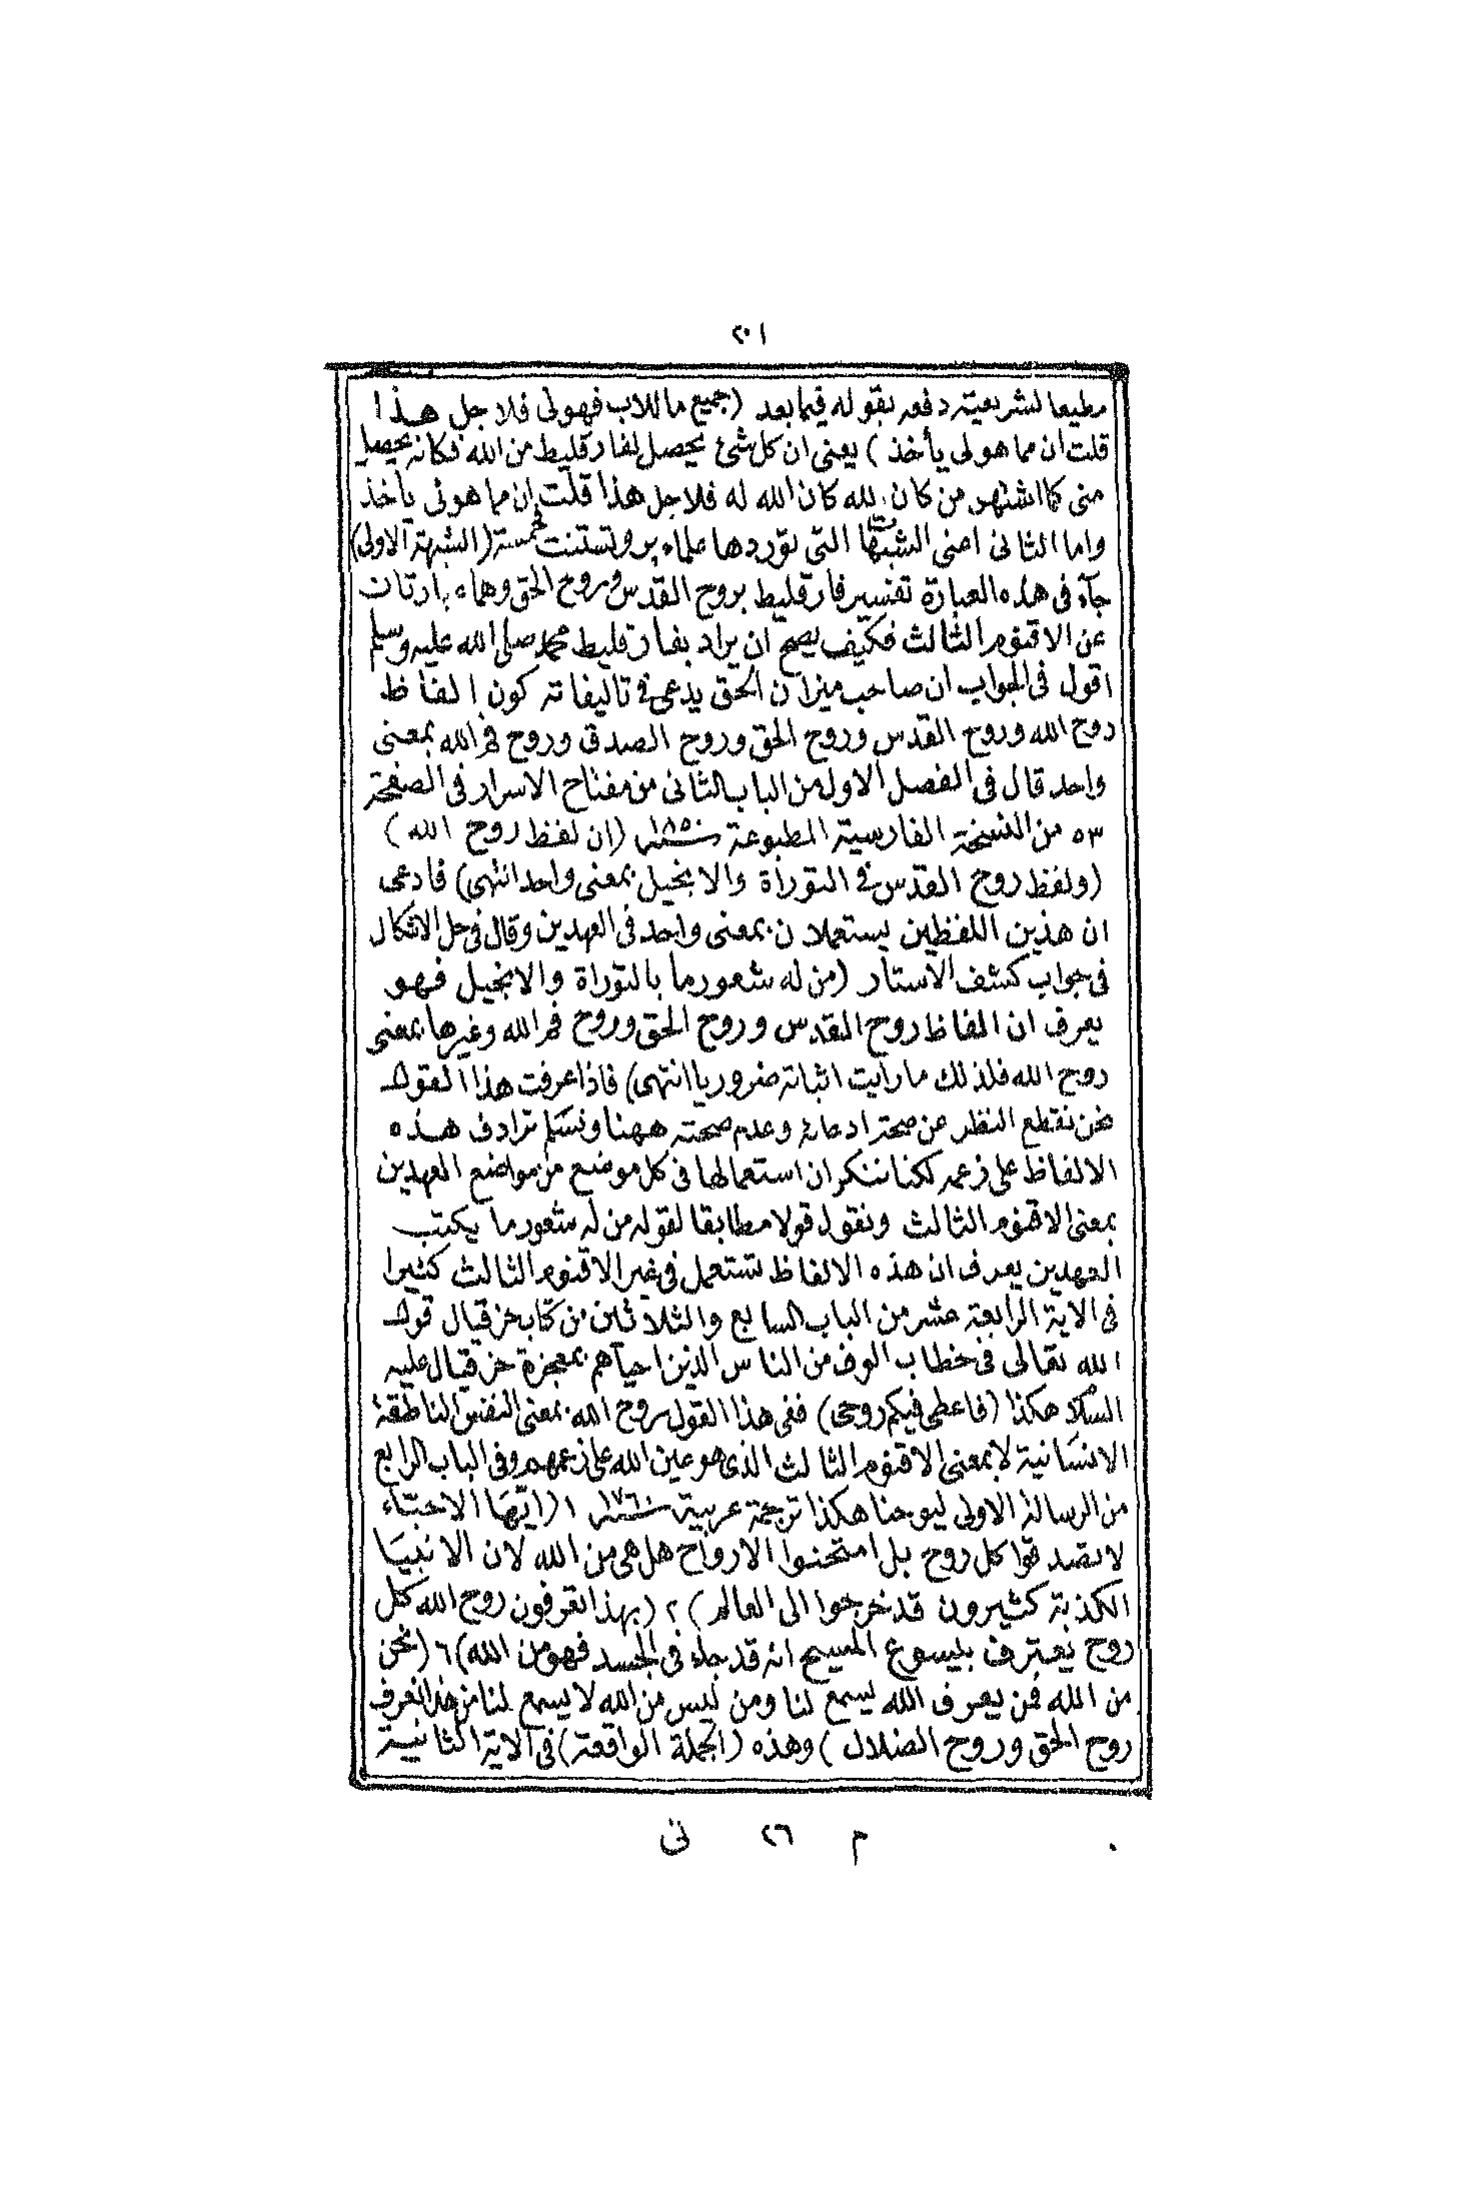 ٢٠١
مطيعا لشريعته دفعه بقوله فيما بعد (جميع ما للاب فهو لى فلاجل هذا
قلت ان مما هو لى يأخذ) يعنى ان كل شئ يحصل لفارقليط من الله فكانه يحصل
منى كما اشتهر من كان لله كان الله له فلاجل هذا قلت ان مما هو لى يأخذ
واما الثانى اعنى الشبهات التى توردها علماء بروتستنت فخمسة (الشبهة الاولى)
جآء فى هذه العبارة تفسير فارقليط بروح القدس وروح الحق وهما عبارتان
عن الاقنوم الثالث فكيف يصح ان يراد بفارقليط محمد صلى الله عليه وسلم
اقول فى الجواب ان صاحب ميزان الحق يدعى فى تاليفاته كون الفاظ
روح الله وروح القدس وروح الحق وروح الصدق وروح فم الله بمعنى
واحد قال فى الفصل الاول من الباب الثانى من مفتاح الاسرار فى الصفحة
٥٣ من النسخة الفارسية المطبوعة سنة ١٨٥٠ (ان لفظ روح الله)
(ولفظ روح القدس فى التوراة والانجيل بمعنى واحد انتهى) فادعى
ان هذين اللفظين يستعملان بمعنى واحد فى العهدين وقال فى حل الاشكال
فى جواب كشف الاستار (من له شعور ما بالتوراة والانجيل فهو
يعرف ان الفاظ روح القدس وروح الحق وروح فم الله وغيرها بمعنى
روح الله فلذلك ما رايت اثباته ضروريا انتهى) فاذا عرفت هذا القول
فنحن نقطع النظر عن صحة ادعائه وعدم صحته ههنا ونسلم ترادف هذه
الالفاظ على زعمه لكنا ننكر ان استعمالها فى كل موضع من مواضع العهدين
بمعنى الاقنوم الثالث ونقول قولا مطابقا لقوله من له شعور ما بكتب
العهدين يعرف ان هذه الالفاظ تستعمل فى غير الاقنوم الثالث كثيرا
فى الاية الرابعة عشر من الباب السابع والثلاثين من كتاب حزقيال قول
الله تعالى فى خطاب الوف من الناس الذين احياهم بمعجزة حزقيال عليه
السلام هكذا (فاعطى فيكم روحى) ففى هذا القول روح الله بمعنى النفس الناطقة
الانسانية لا بمعنى الاقنوم الثالث الذى هو عين الله على زعمهم وفى الباب الرابع
من الرسالة الاولى ليوحنا هكذا ترجمة عربية سنة ١٧٦٠ ١ (ايها الاحباء
لا تصدقوا كل روح بل امتحنوا الارواح هل هى من الله لان الانبيا
الكذبة كثيرون قد خرجوا الى العالم) ٢ (بهذا تعرفون روح الله كل
روح يعترف بيسوع المسيح انه قد جاء فى الجسد فهو من الله) ٦ (نحن
من الله فمن يعرف الله يسمع لنا ومن ليس من الله لا يسمع لنا من هذا نعرف
روح الحق وروح الضلال) وهذه (الجملة الواقعة) فى الاية الثانية
م ٢٦ نى